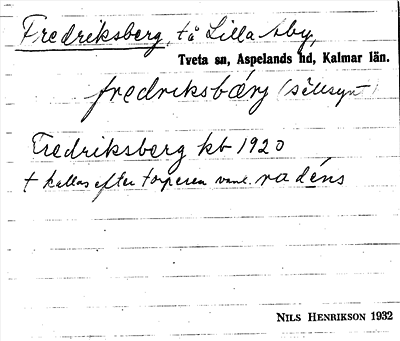 Fredriksberg, t å Lilla Aby,
Tveta sn, Aspelands hd, Kalmar län.
fredriksbærj (sälls.)
Fredriksberg kb 1920
+ kallas efter torparen vanl. radéns
NILS HENRIKSON 1932